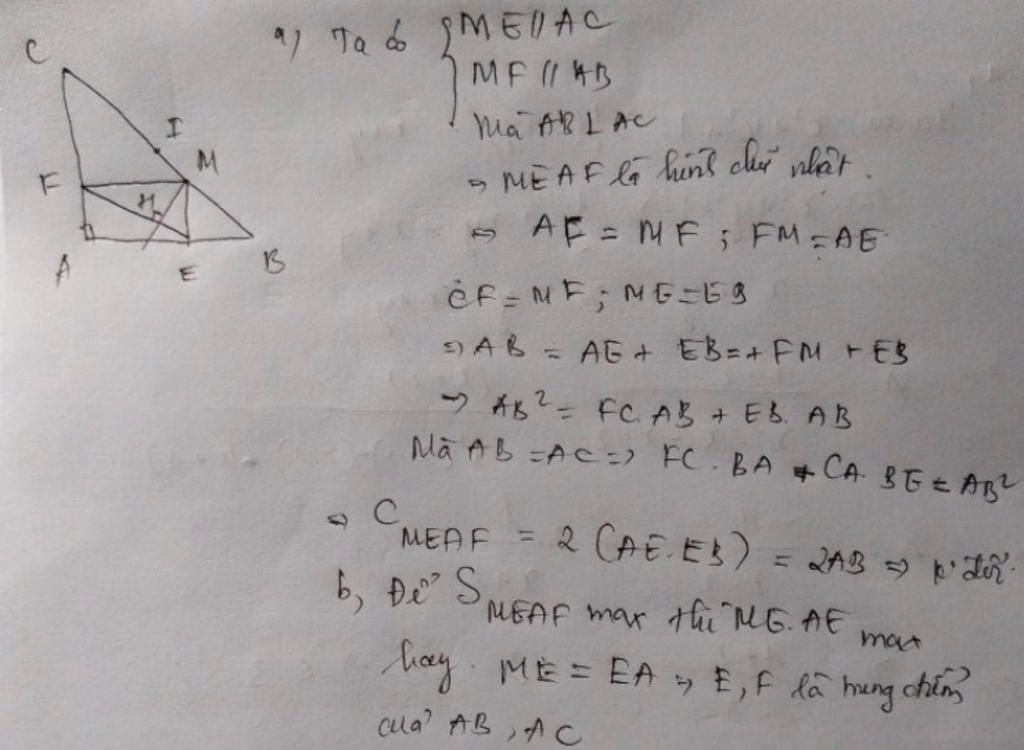 C
I
F
M
H
A
E
B
a) Ta có { ME // AC
MF // AB
Mà AB ⊥ AC
=> MEAF là hình chữ nhật.
<=> AE = MF ; FM = AE
CF = MF ; ME = EB
=> AB = AE + EB = + FM + EB
=> AB² = FC. AB + EB. AB
Mà AB = AC => FC . BA + CA. BE = AB²
=> C MEAF = 2 (AE.EB) = 2AB => k' đổi.
b, Để S MEAF max thì ME. AE max
hay ME = EA => E, F là trung điểm
của AB, AC